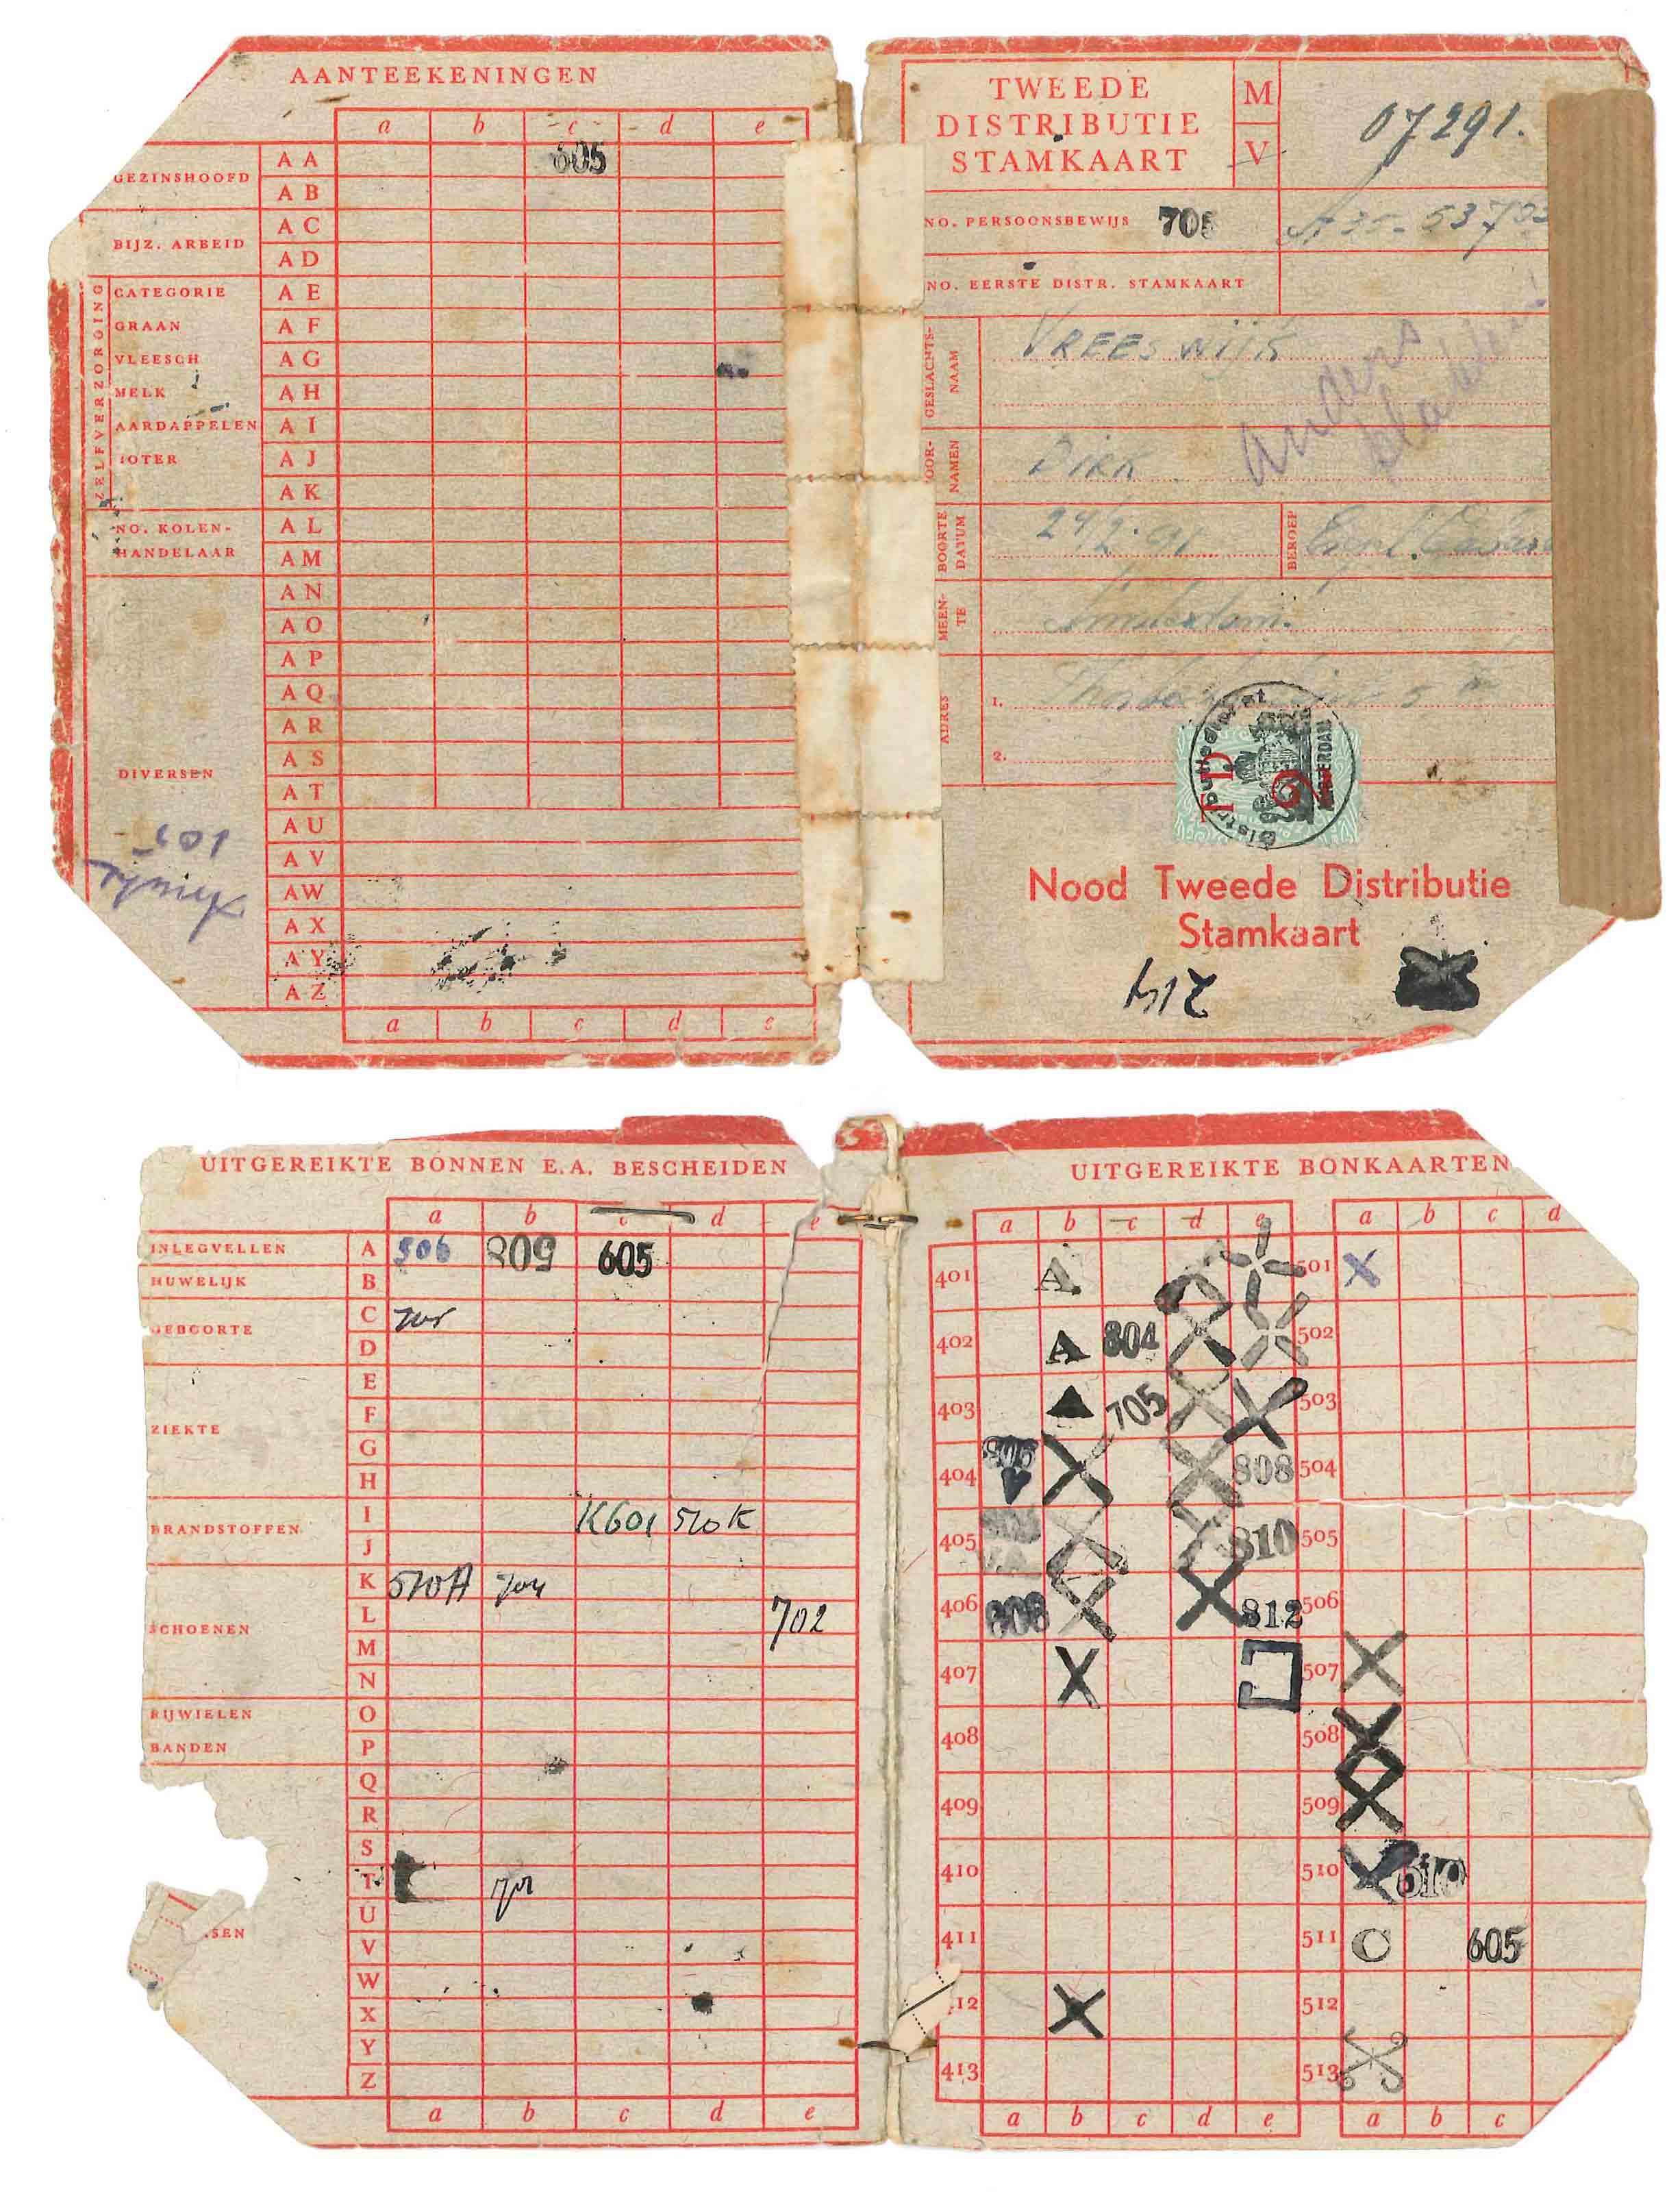 AANTEEKENINGEN
a b c d e
GEZINSHOOFD
AA 605
AB
BIJZ. ARBEID
AC
AD
ZELFVERZORGING
CATEGORIE AE
GRAAN AF
VLEESCH AG
MELK AH
AARDAPPELEN AI
BOTER AJ
AK
NO. KOLEN-
HANDELAAR
AL
AM
AN
AO
AP
AQ
AR
AS
DIVERSEN
AT
AU
AV
AW
AX
AY
AZ
a b c d e
TWEEDE
DISTRIBUTIE
STAMKAART
M
V
07291.
NO. PERSOONSBEWIJS 705
NO. EERSTE DISTR. STAMKAART
GESLACHTS-
NAAM
VREESWIJK
VOOR-
NAMEN
DIRK
GEBOORTE
DATUM
24/2-91
BEROEP
anders
GEMEEN-
TE
Amsterdam.
ADRES
1.
2.
Distributiedienst
AMSTERDAM
TD
2
Nood Tweede Distributie
Stamkaart
214
UITGEREIKTE BONNEN E.A. BESCHEIDEN
a b c d e
INLEGVELLEN A 506 809 605
HUWELIJK B
GEBOORTE
C 705
D
E
ZIEKTE
F
G
H
BRANDSTOFFEN
I K601 510K
J
K 510A 704
SCHOENEN
L 702
M
N
RIJWIELEN O
BANDEN P
Q
R
S
T
U
SEN
V
W
X
Y
Z
a b c d e
UITGEREIKTE BONKAARTEN
a b c d e a b c d
401 A 501 X
402 A 804 502
403 705 X 503
404 X 808 504
405 810 505
406 808 X 812 506
407 X 507 X
408 508 X
409 509 X
410 510 X 610
411 511 C 605
412 X 512
413 513
a b c d e a b c